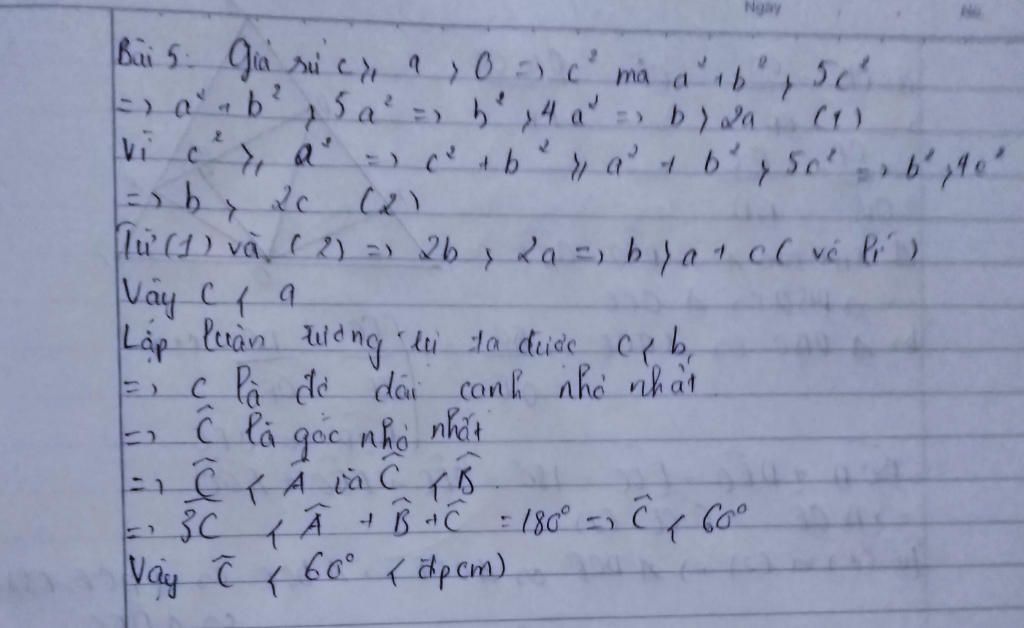 Ngày No.
Bài 5: Giả sử c ⩾ a > 0 => c² mà a² + b² > 5c²
=> a² + b² > 5a² => b² > 4a² => b > 2a (1)
Vì c² ⩾ a² => c² + b² ⩾ a² + b² > 5c² => b² > 4c²
=> b > 2c (2)
Từ (1) và (2) => 2b > 2a => b > a + c ( vô lí )
Vậy c < a
Lập luận tương tự ta được c < b,
=> c là độ dài cạnh nhỏ nhất
=> Ĉ là góc nhỏ nhất
=> Ĉ < Â và Ĉ < B̂.
=> 3Ĉ < Â + B̂ + Ĉ = 180° => Ĉ < 60°
Vậy Ĉ < 60° (đpcm)